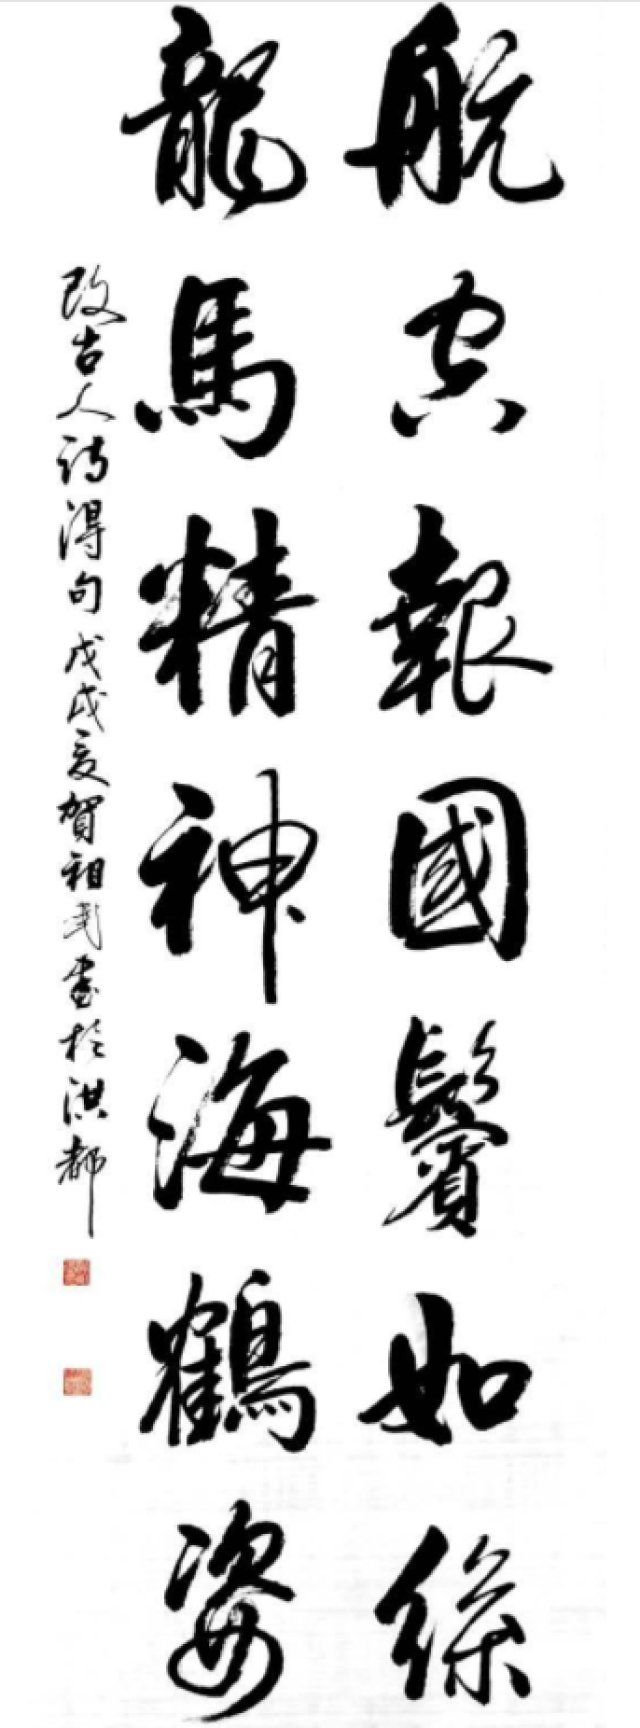 航空報國鬢如絲
龍馬精神海鶴姿
改古人詩得句戊戌夏賀祖武書於洪都